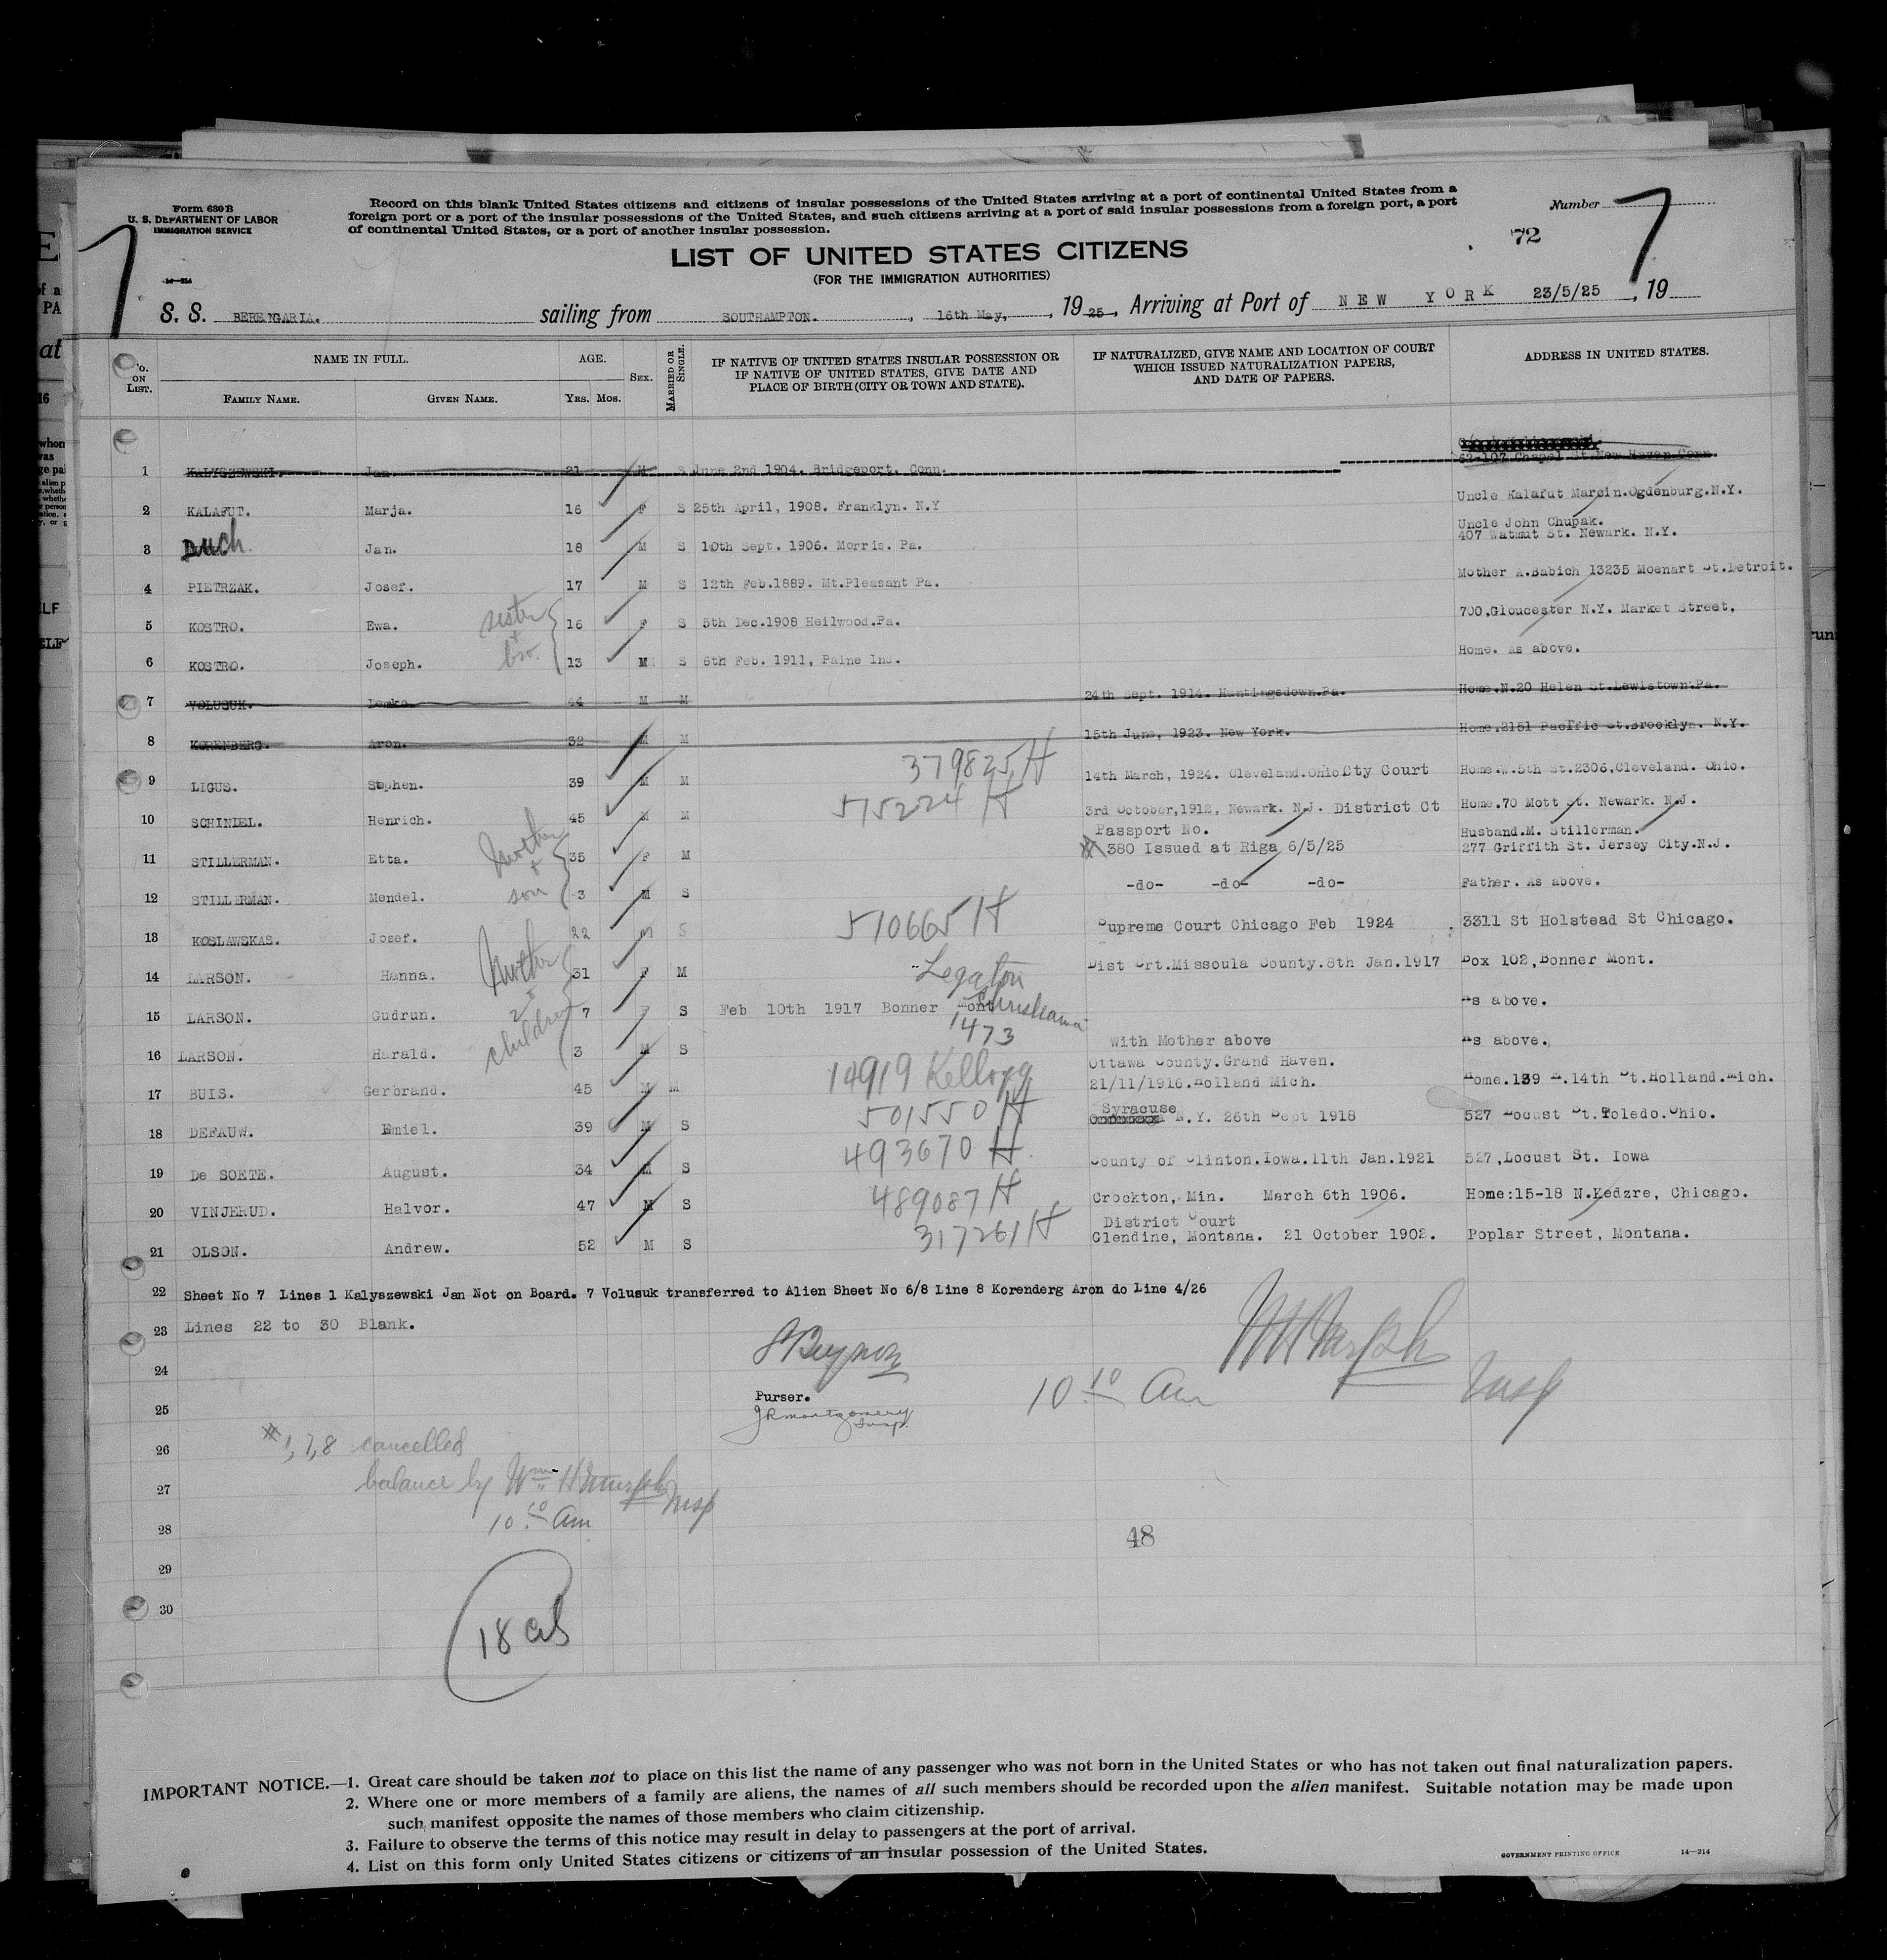 Form 630 B
U. S. DEPARTMENT OF LABOR
IMMIGRATION SERVICE
Record on this blank United States citizens and citizens of insular possessions of the United States arriving at a port of continental United States from a
foreign port or a port of the insular possessions of the United States, and such citizens arriving at a port of said insular possessions from a foreign port, a port
of continental United States, or a port of another insular possession.
Number
7
7
72
LIST OF UNITED STATES CITIZENS
(FOR THE IMMIGRATION AUTHORITIES)
14-214
S. S. BERENGARIA. sailing from SOUTHAMPTON. , 16th May, , 19 25 , Arriving at Port of NEW YORK 23/5/25 , 19
No. ON LIST.
NAME IN FULL.
FAMILY NAME. GIVEN NAME.
AGE.
YRS. MOS.
SEX.
MARRIED OR SINGLE.
IF NATIVE OF UNITED STATES INSULAR POSSESSION OR
IF NATIVE OF UNITED STATES, GIVE DATE AND
PLACE OF BIRTH (CITY OR TOWN AND STATE).
IF NATURALIZED, GIVE NAME AND LOCATION OF COURT
WHICH ISSUED NATURALIZATION PAPERS,
AND DATE OF PAPERS.
ADDRESS IN UNITED STATES.
1 KALYSZEWSKI. Jan. 21 M S June 2nd 1904. Bridgeport. Conn. 62-107 Chapel St New Haven Conn.
2 KALAFUT. Marja. 16 F S 25th April, 1908. Franklyn. N.Y Uncle Kalafut Marcin.Ogdenburg.N.Y.
3 Duch Jan. 18 M S 10th Sept. 1906. Morris. Pa. Uncle John Chupak.
407 Watmut St. Newark. N.Y.
4 PIETRZAK. Josef. 17 M S 12th Feb.1889. Mt.Pleasant Pa. Mother A.Babich 13235 Moenart St.Detroit.
5 KOSTRO. Ewa. sister + bro. 16 F S 5th Dec.1908 Heilwood.Pa. 700,Gloucester N.Y. Market Street,
6 KOSTRO. Joseph. 13 M S 6th Feb. 1911, Paine Ind. Home. As above.
7 VOLUSUK. 44 M M 24th Sept. 1914. Huntingsdown.Pa. Home.N.20 Helen St.Lewistown.Pa.
8 KORENBERG. Aron. 32 M M 15th June, 1923. New York. Home.2151 Pacific St.Brooklyn. N.Y.
9 LIGUS. Stephen. 39 M M 379825 H 14th March, 1924. Cleveland.Ohio Cty Court Home.W.5th St.2306,Cleveland. Ohio.
10 SCHINDEL. Henrich. 45 M M 515224 H 3rd October,1912, Newark. N.J. District Ct Home.70 Mott St. Newark. N.J.
11 STILLERMAN. Etta. Mother + son 35 F M Passport No.
# 380 Issued at Riga 6/5/25 Husband.M. Stillerman.
277 Griffith St. Jersey City.N.J.
12 STILLERMAN. Mendel. 3 M S -do- -do- -do- Father. As above.
13 KOSLAWSKAS. Josef. 22 M S 510665 H Supreme Court Chicago Feb 1924 3311 St Holstead St Chicago.
14 LARSON. Hanna. Mother + 2 children 31 F M Legation Christiania 1473 Dist Crt.Missoula County.8th Jan.1917 Box 102,Bonner Mont.
15 LARSON. Gudrun. 7 F S Feb 10th 1917 Bonner Mont As above.
16 LARSON. Harald. 3 M S With Mother above As above.
17 BUIS. Gerbrand. 45 M M 14919 Kellogg Ottawa County.Grand Haven.
21/11/1916.Holland Mich. Home.139 E.14th St.Holland.Mich.
18 DEFAUW. Emiel. 39 M S 501550 H Syracuse N.Y. 26th Sept 1918 527 Locust St.Toledo.Ohio.
19 De SOETE. August. 34 M S 493670 H County of Clinton.Iowa.11th Jan.1921 527,Locust St. Iowa
20 VINJERUD. Halvor. 47 M S 489087 H Crockton, Min. March 6th 1906. Home:15-18 N.Kedzre, Chicago.
21 OLSON. Andrew. 52 M S 317261 H District Court
Glendine, Montana. 21 October 1902. Poplar Street, Montana.
22 Sheet No 7 Lines 1 Kalyszewski Jan Not on Board. 7 Volusuk transferred to Alien Sheet No 6/8 Line 8 Korenderg Aron do Line 4/26
23 Lines 22 to 30 Blank.
24
Purser.
25 JRMontgomery Insp. 10 10 Am Insp
26 # 1,7,8 cancelled
27 balance by Wm H Murphy Insp
28 10 10 Am
48
29
30
18 cits
IMPORTANT NOTICE.—1. Great care should be taken not to place on this list the name of any passenger who was not born in the United States or who has not taken out final naturalization papers.
2. Where one or more members of a family are aliens, the names of all such members should be recorded upon the alien manifest. Suitable notation may be made upon
such manifest opposite the names of those members who claim citizenship.
3. Failure to observe the terms of this notice may result in delay to passengers at the port of arrival.
4. List on this form only United States citizens or citizens of an insular possession of the United States.
GOVERNMENT PRINTING OFFICE 14—214